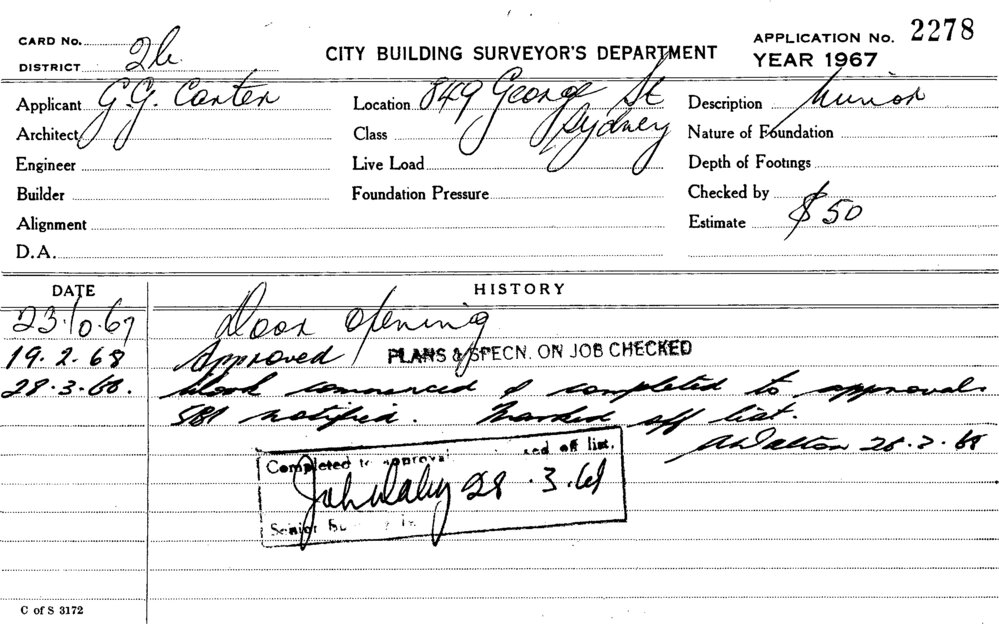 CARD No.
DISTRICT 2b
CITY BUILDING SURVEYOR'S DEPARTMENT
APPLICATION No. 2278
YEAR 1967
Applicant G.G. Carter
Location 849 George St Sydney
Description Minor
Architect
Class
Nature of Foundation
Engineer
Live Load
Depth of Footings
Builder
Foundation Pressure
Checked by
Alignment
Estimate $50
D.A.
DATE HISTORY
23.10.67 Door Opening
19.2.68 Approved PLANS & SPECN. ON JOB CHECKED
28.3.68. Work commenced & completed to approval.
SBI notified. Marked off list.
28.3.68
Completed to approval ed off list.
28.3.68
Senior
C of S 3172